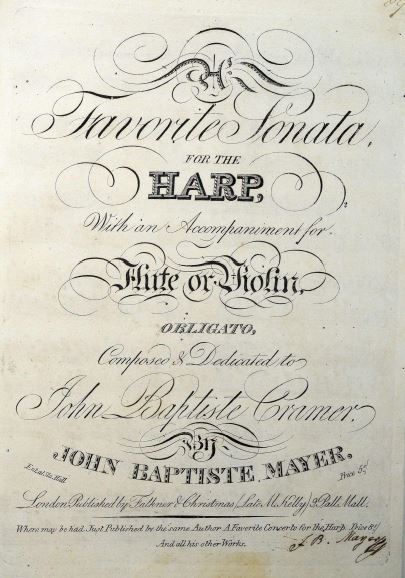 A
Favorite Sonata,
FOR THE
HARP,
With an Accompaniment for
Flute or Violin,
OBLIGATO,
Composed & Dedicated to
John Baptiste Cramer.
By
JOHN BAPTISTE MAYER.
Ent. at Sta. Hall. Price 5s/
London Published by Falkner & Christmas, (Late M. Kelly) 9 Pall Mall.
Where may be had Just Published by the same Author A Favorite Concerto for the Harp. Price 8s/
And all his other Works.
J. B. Mayer